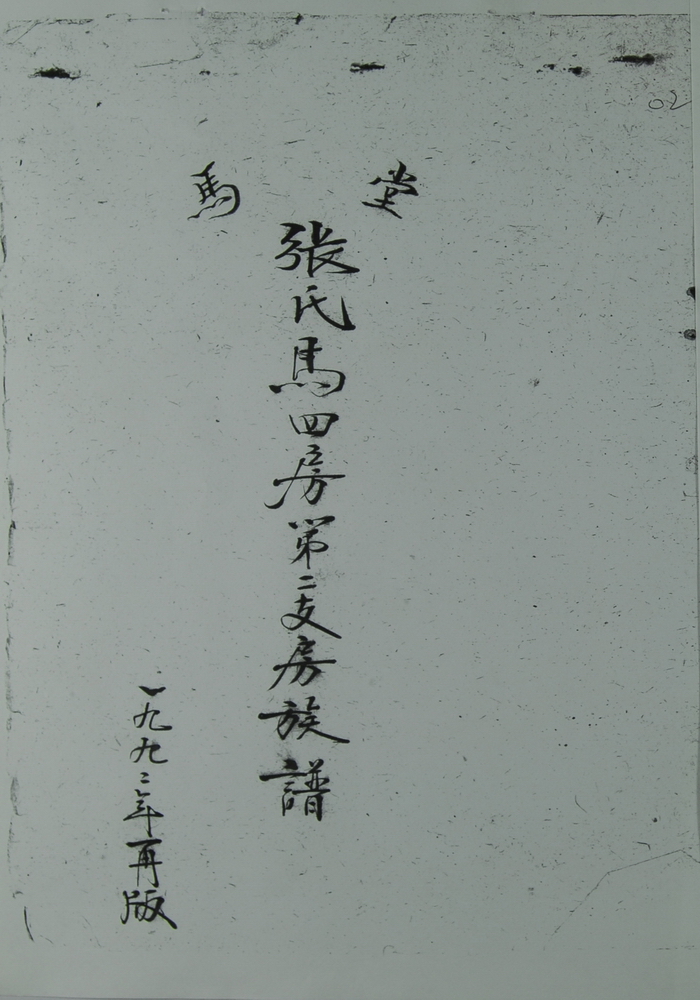 02
堂馬
張氏馬四房第二支房族譜
一九九二年再版